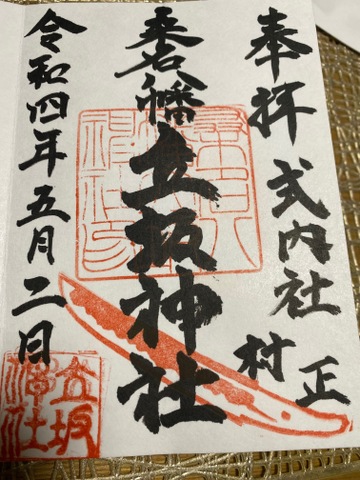 奉拝 式内社
村正
桒名八幡立坂神社
令和四年五月二日
立坂
神社